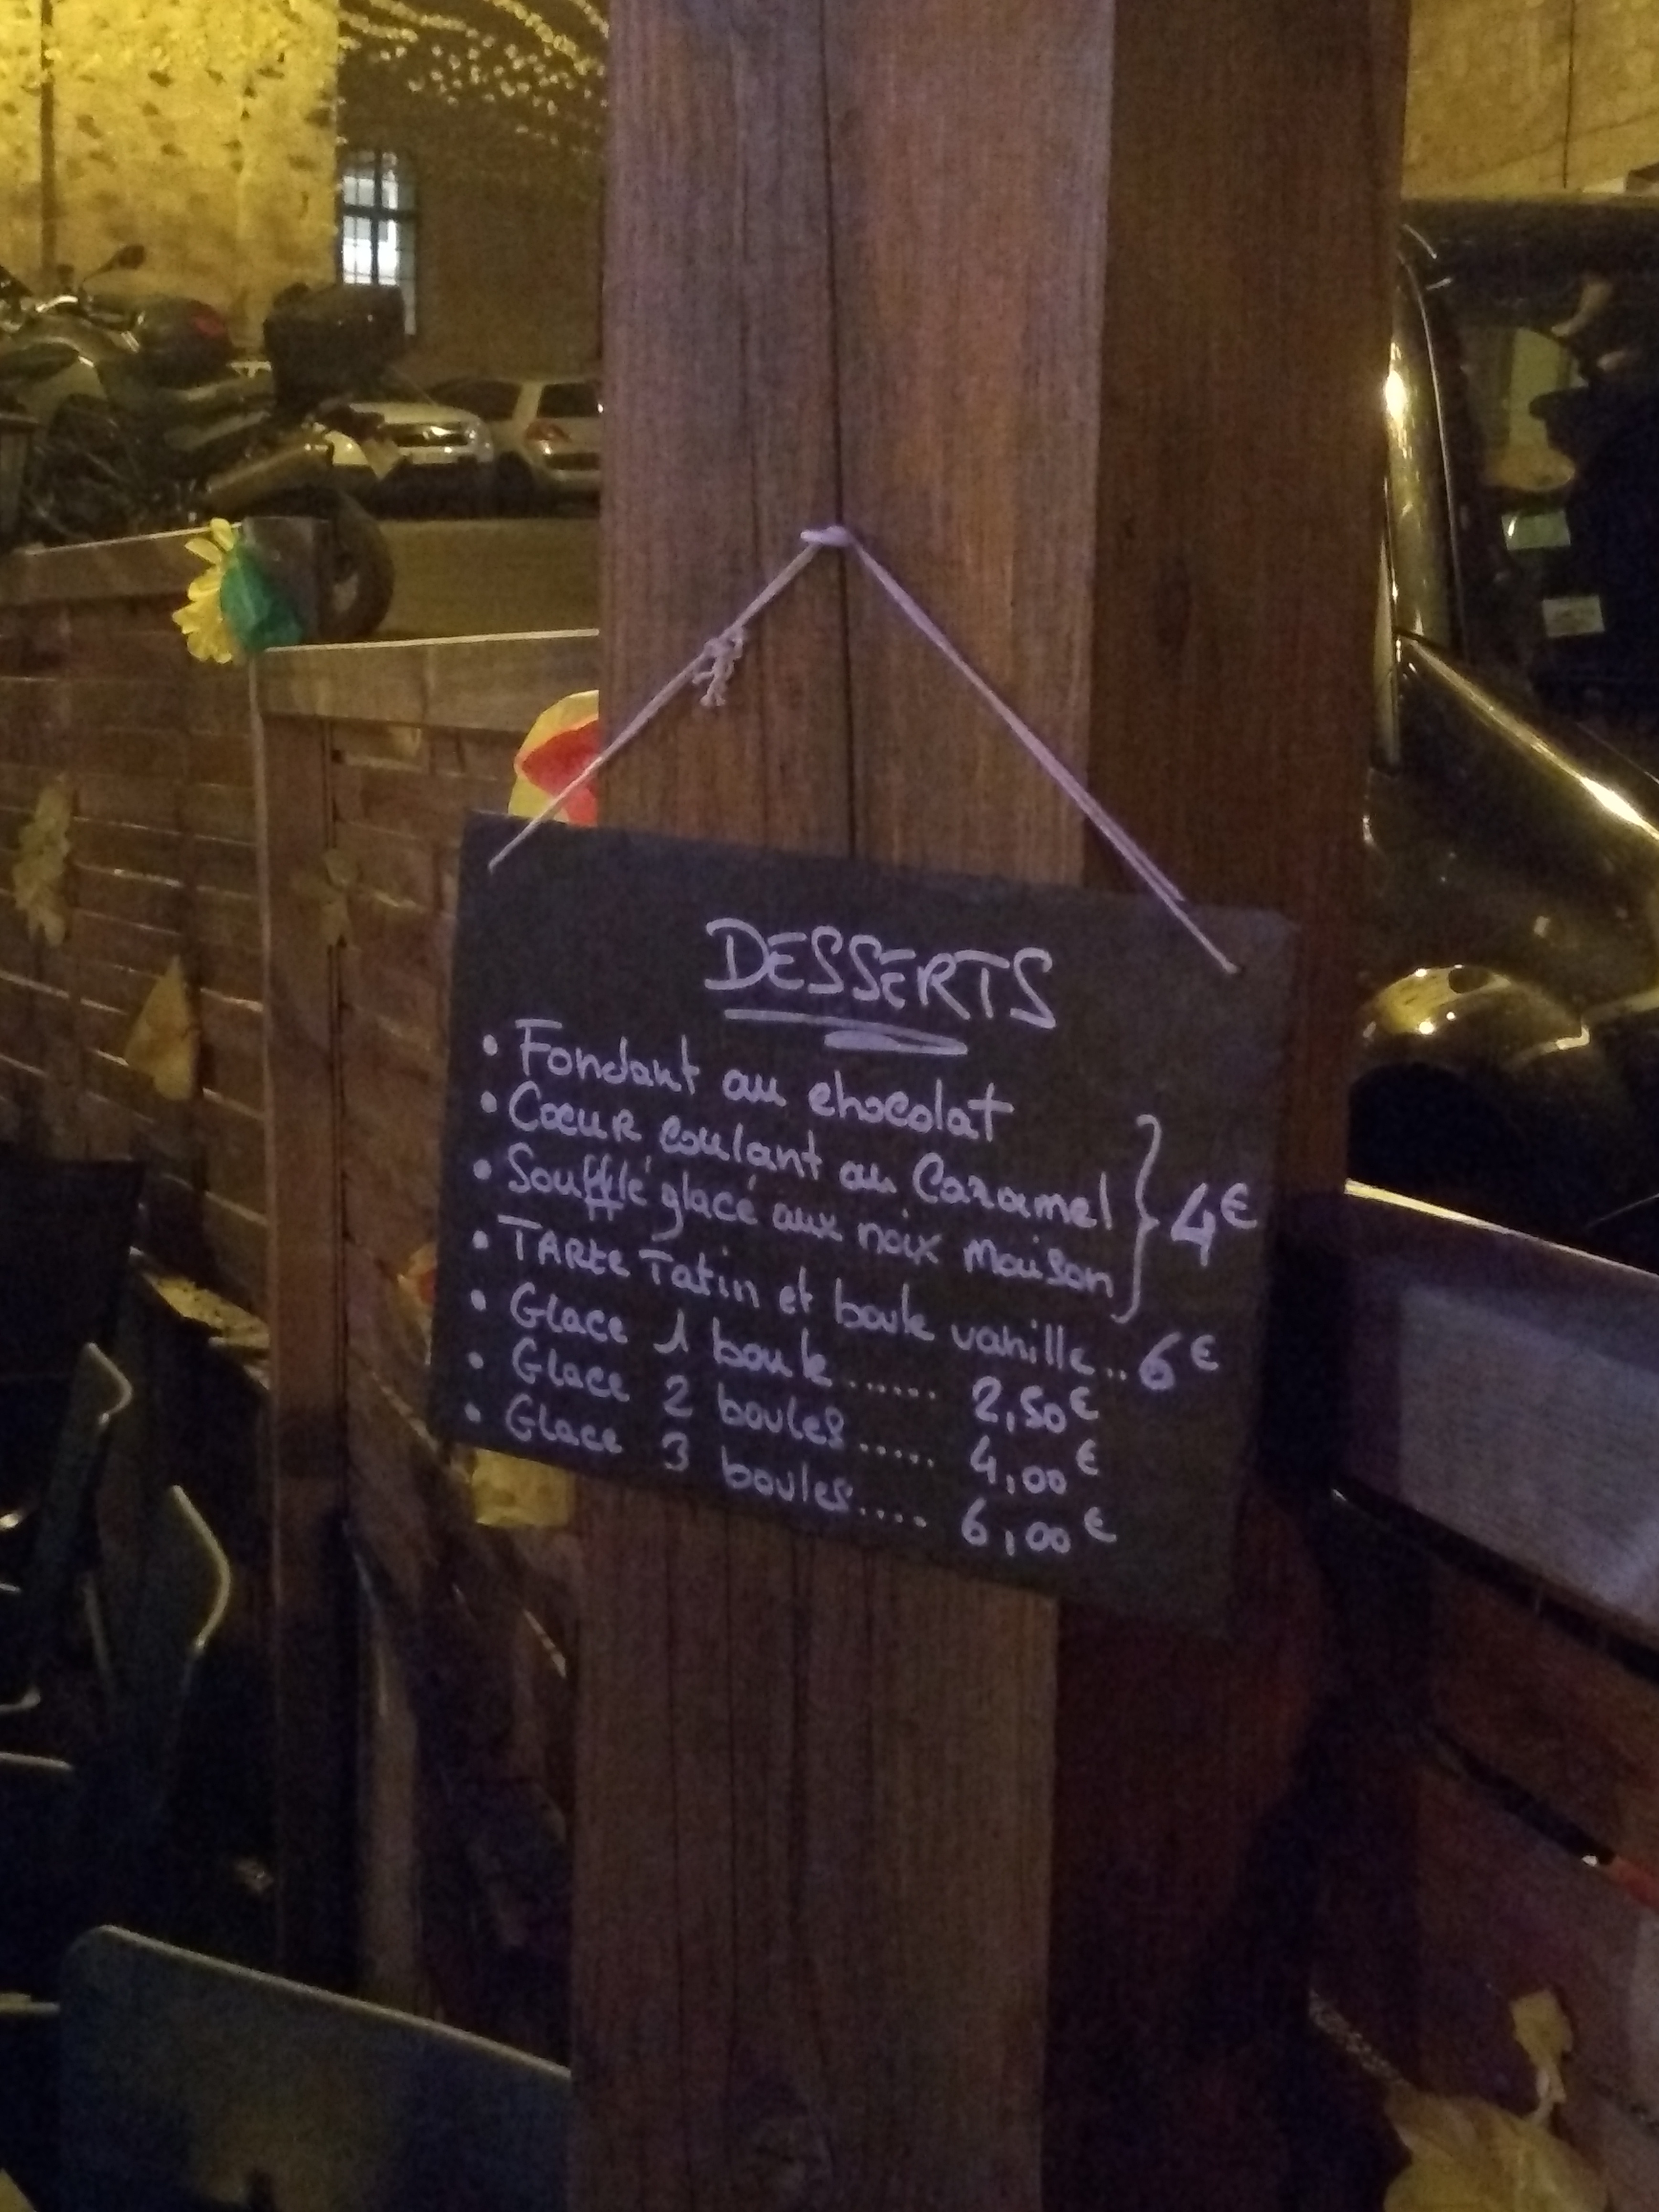 DESSERTS
• Fondant au chocolat
• Coeur coulant au Caramel
• Soufflé glacé aux noix Maison } 4€
• TARte Tatin et boule vanille .. 6€
• Glace 1 boule ...... 2,50€
• Glace 2 boules ..... 4,00€
• Glace 3 boules .... 6,00€